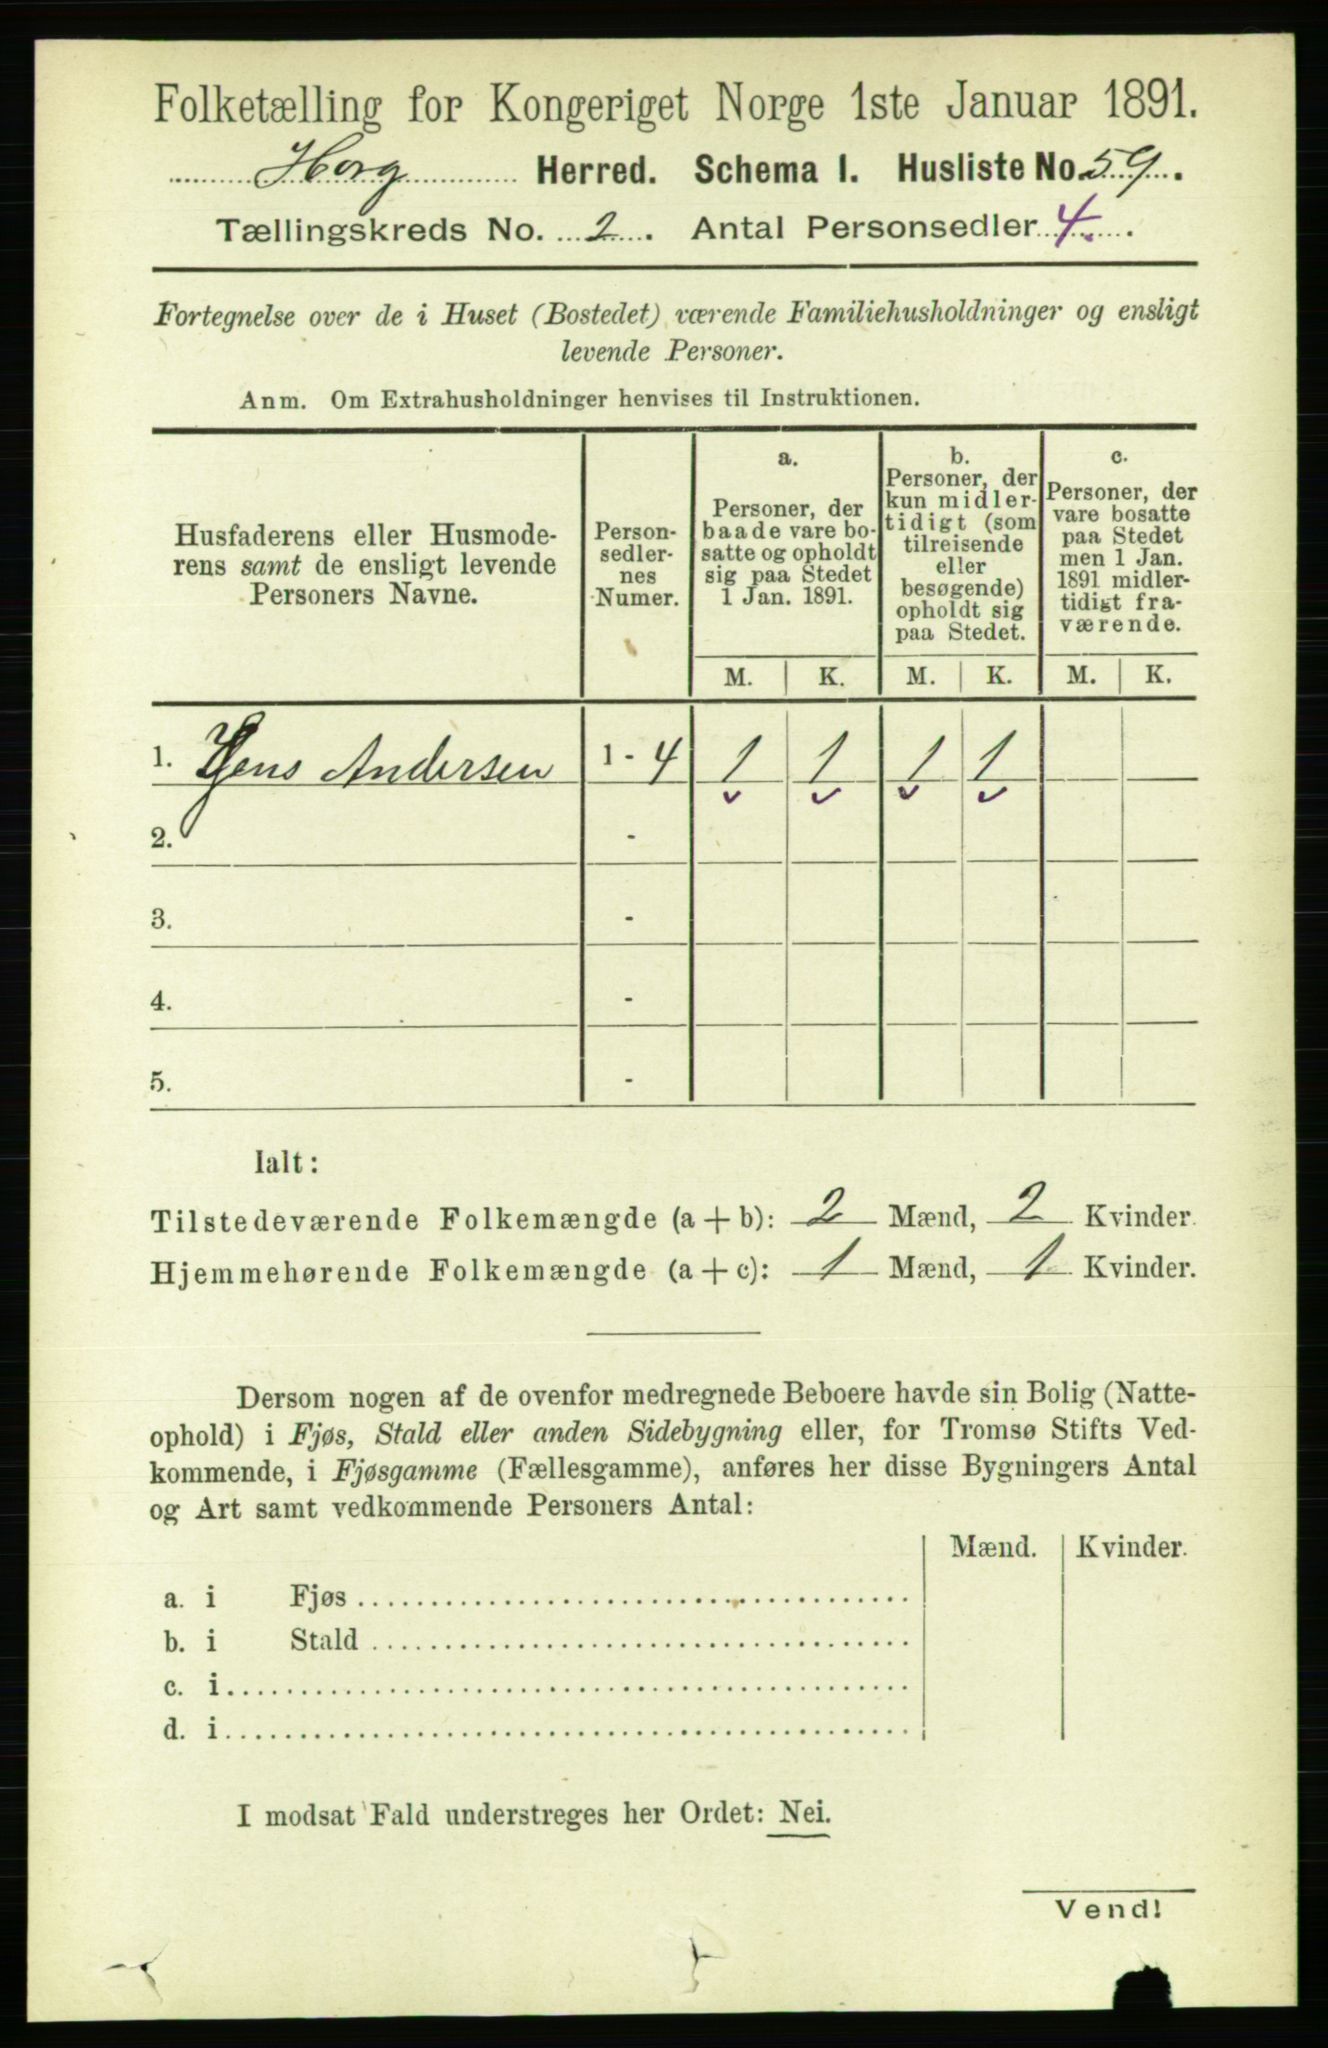 Folketælling for Kongeriget Norge 1ste Januar 1891.
Horg Herred. Schema I. Husliste No. 59.
Tællingskreds No. 2. Antal Personsedler 4.
Fortegnelse over de i Huset (Bostedet) værende Familiehusholdninger og ensligt
levende Personer.
Anm. Om Extrahusholdninger henvises til Instruktionen.
Husfaderens eller Husmode-
rens samt de ensligt levende
Personers Navne.
Person-
sedler-
nes
Numer.
a.
Personer, der
baade vare bo-
satte og opholdt
sig paa Stedet
1 Jan. 1891.
b.
Personer, der
kun midler-
tidigt (som
tilreisende
eller
besøgende)
opholdt sig
paa Stedet.
c.
Personer, der
vare bosatte
paa Stedet
men 1 Jan.
1891 midler-
tidigt fra-
værende.
M. K. M. K. M. K.
1. Jens Andersen 1 - 4 1 1 1 1
2. -
3. -
4. -
5. -
Ialt:
Tilstedeværende Folkemængde (a + b): 2 Mænd, 2 Kvinder.
Hjemmehørende Folkemængde (a + c): 1 Mænd, 1 Kvinder.
Dersom nogen af de ovenfor medregnede Beboere havde sin Bolig (Natte-
ophold) i Fjøs, Stald eller anden Sidebygning eller, for Tromsø Stifts Ved-
kommende, i Fjøsgamme (Fællesgamme), anføres her disse Bygningers Antal
og Art samt vedkommende Personers Antal:
Mænd. Kvinder.
a. i Fjøs
b. i Stald
c. i
d. i
I modsat Fald understreges her Ordet: Nei.
Vend!